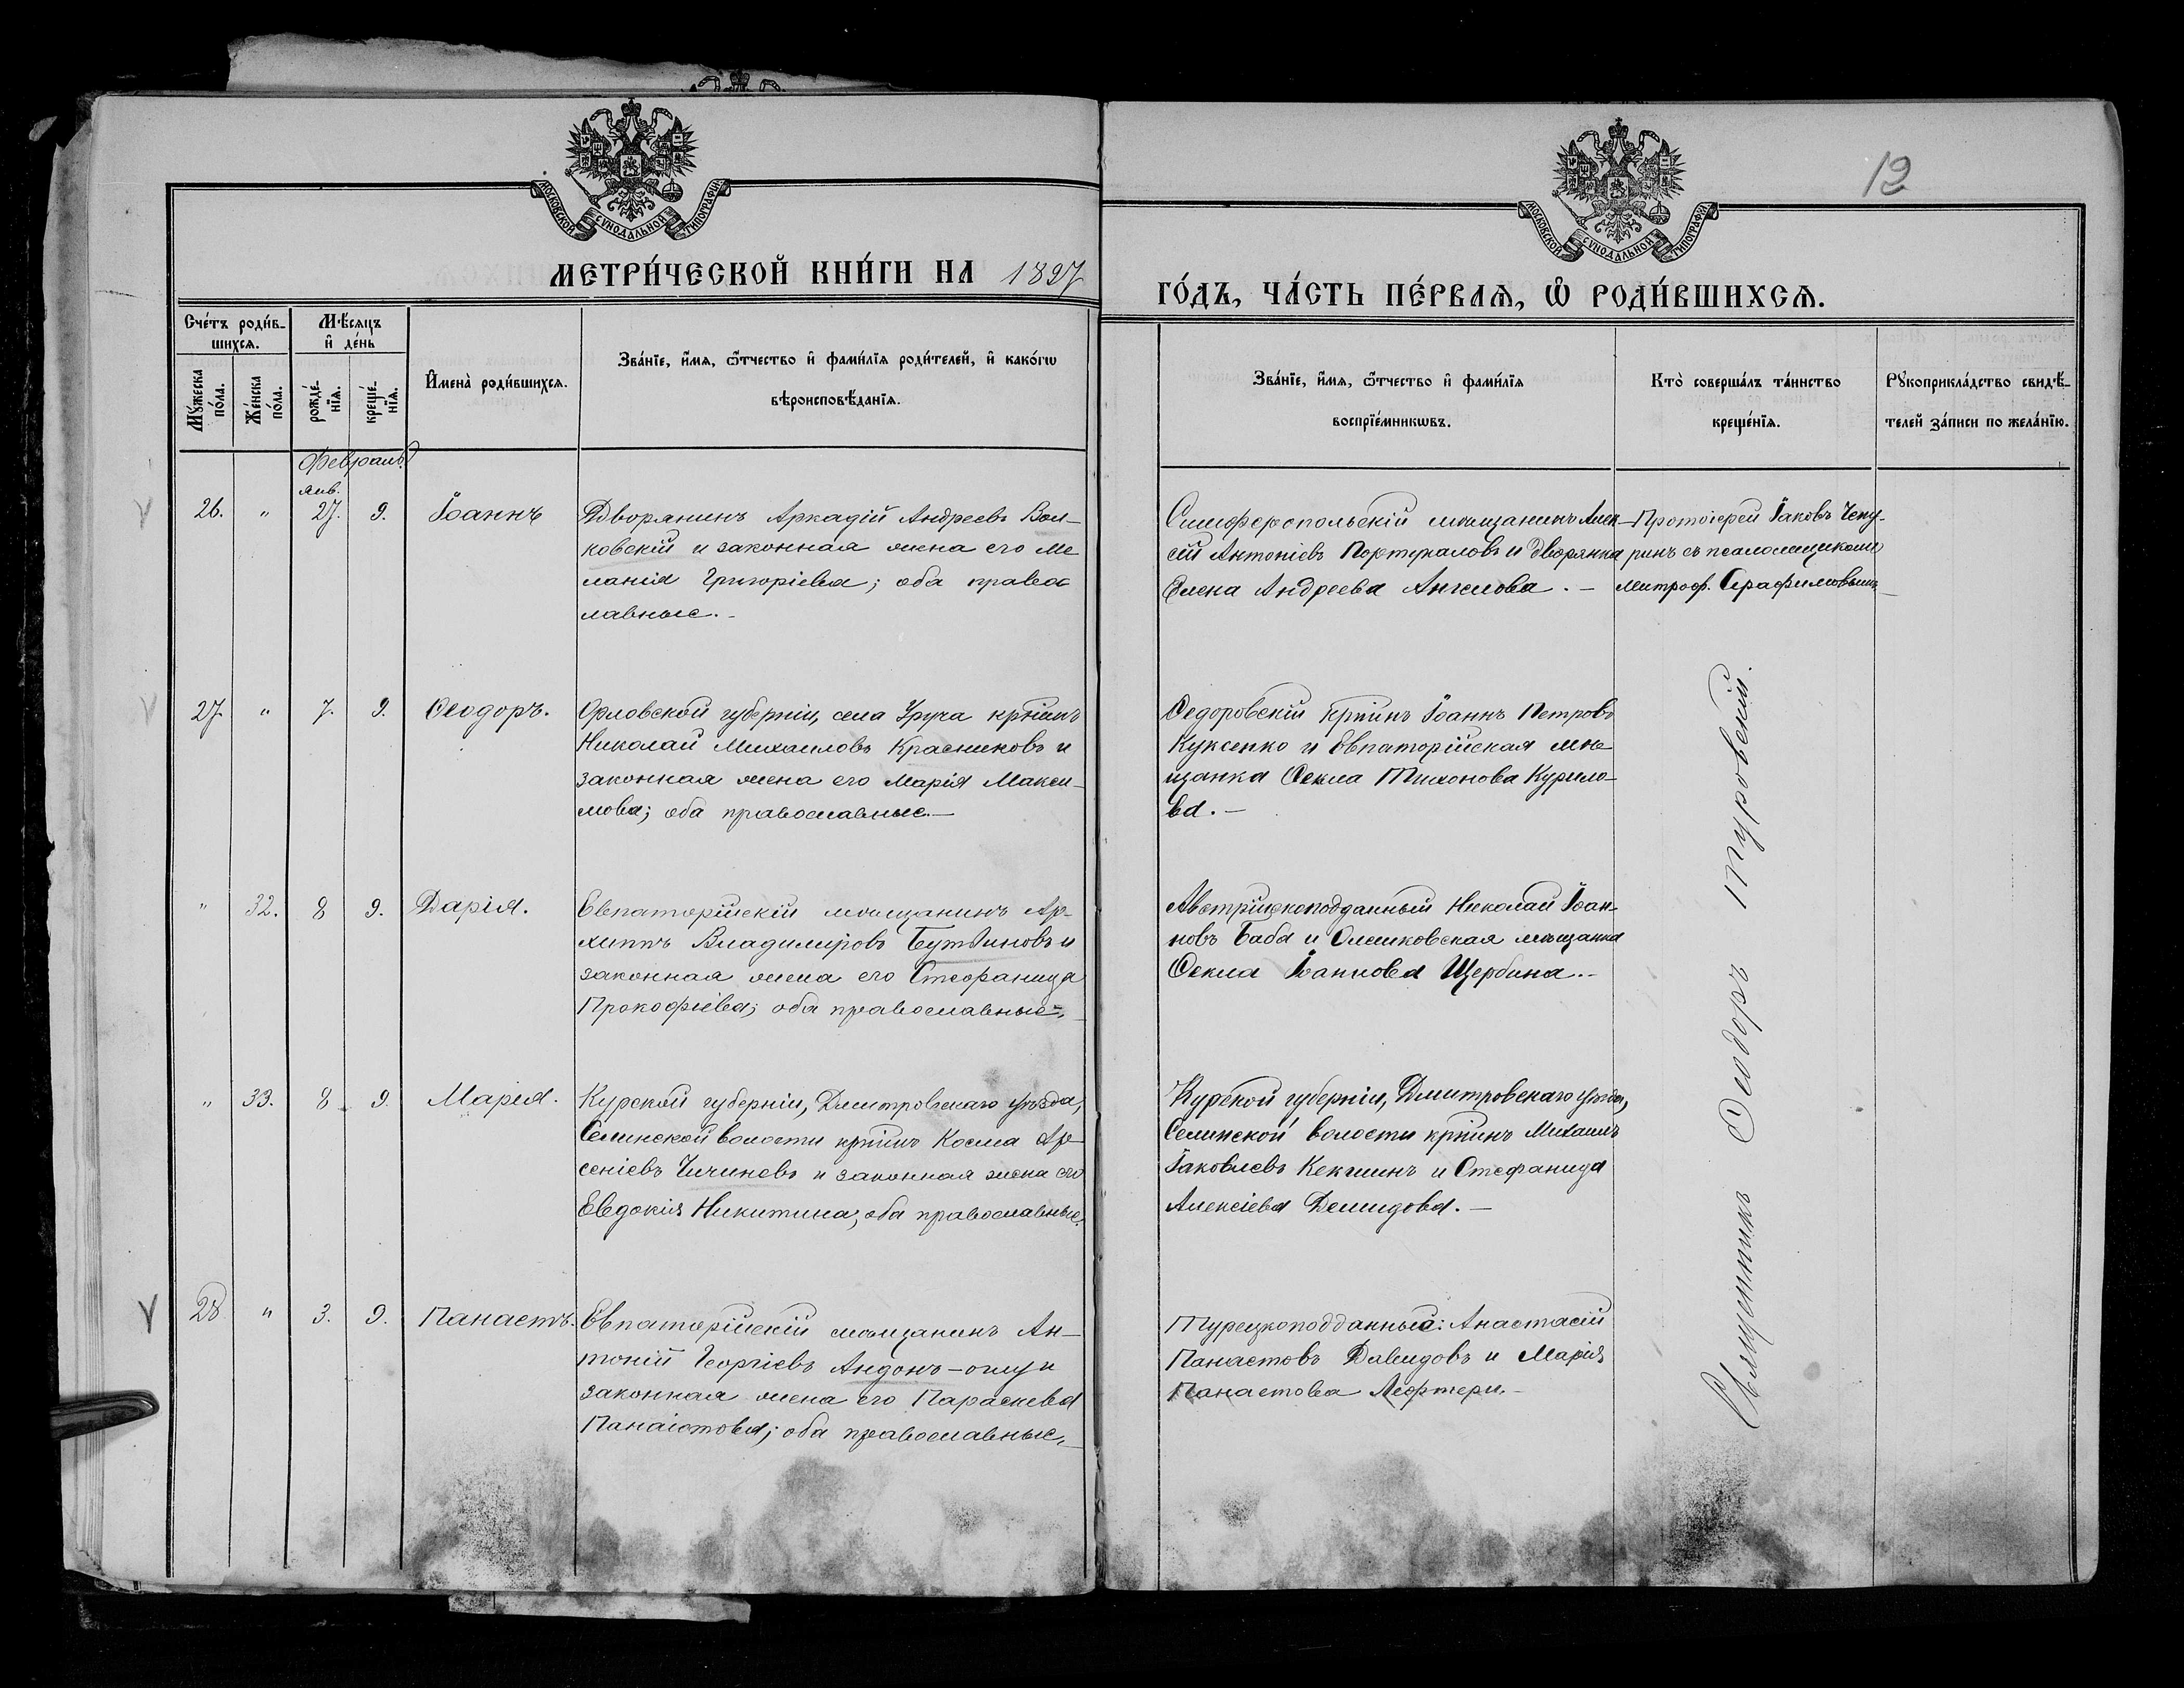 12
МОСКОВСКОЙ СѴНОДАЛЬНОЙ ТИПОГРАФІИ
МОСКОВСКОЙ СѴНОДАЛЬНОЙ ТИПОГРАФІИ
МЕТРИ́ЧЕСКОЙ КНИ́ГИ НА 1897
ГО́ДЪ, ЧА́СТЬ ПЕ́РВАѦ, Ѡ РОДИ́ВШИХСѦ.
Сче́тъ роди́в-
шихсѧ.
Мѣ́сѧцъ
и де́нь
Мꙋ́жеска
по́ла.
Же́нска
по́ла.
рожде́-
нїѧ.
креще́-
нїѧ.
Имена̀ роди́вшихсѧ.
Зва́нїе, и́мѧ, ѻ́тчество и фами́лїѧ роди́телей, и како́гѡ
вѣроисповѣ́данїѧ.
Зва́нїе, и́мѧ, ѻ́тчество и фами́лїѧ
воспрїе́мникѡвъ.
Кто̀ соверша́лъ та́инство
креще́нїѧ.
Рꙋкоприкла́дство свидѣ́-
телей за́писи по жела́нїю.
Февраль
янв.
26. " 27. 9. Іоаннъ
Дворянинъ Аркадій Андреевъ Вол-
ковскій и законная жена его Ме
ланія Григорьева; оба правос
лавные.-
Симферопольскій мѣщанинъ Алек-
сій Антоніевъ Португаловъ и дворянка
Елена Андреева Ангелова. -
Протоіерей Іаковъ Чепу-
ринъ съ псаломщикомъ
Митроф. Серафимовымъ
27. " 7. 9. Ѳеодоръ.
Орловской губерніи, села Уруча крѣинъ
Николай Михаиловъ Красниковъ и
законная жена его Марія Макси-
мова; оба православные.-
Ѳедоровскій крѣинъ Іоаннъ Петровъ
Куксенко и Евпаторійская мѣ-
щанка Ѳекла Тихонова Курило-
ва. -
" 32. 8 9. Дарія.
Евпаторійскій мѣщанинъ Ар-
хиппъ Владиміровъ Бутвиновъ и
законная жена его Стефанида
Прокофіева; оба православные.-
Австрійскоподданный Николай Іоан-
новъ Баба и Олешковская мѣщанка
Ѳекла Іоаннова Щербина. -
" 33. 8 9. Марія.
Курской губерніи, Дмитровскаго уѣзда,
Селинской волости крѣинъ Косма Ар-
сеніевъ Чичиневъ и законная жена его
Евдокія Никитина; оба православные.
Курской губерніи, Дмитровскаго уѣзда,
Селинской волости крѣинъ Михаилъ
Іаковлевъ Кекшинъ и Стефанида
Алексіева Демидова. -
28 " 3. 9. Панаетъ.
Евпаторійскій мѣщанинъ Ан-
тоній Георгіевъ Андонъ-оглу и
законная жена его Параскева
Панаіотова; оба православные.-
Турецкоподданные: Анастасій
Панаетовъ Давидовъ и Марія
Панаетова Лефтери. -
Священникъ Ѳеодоръ Туровскій.